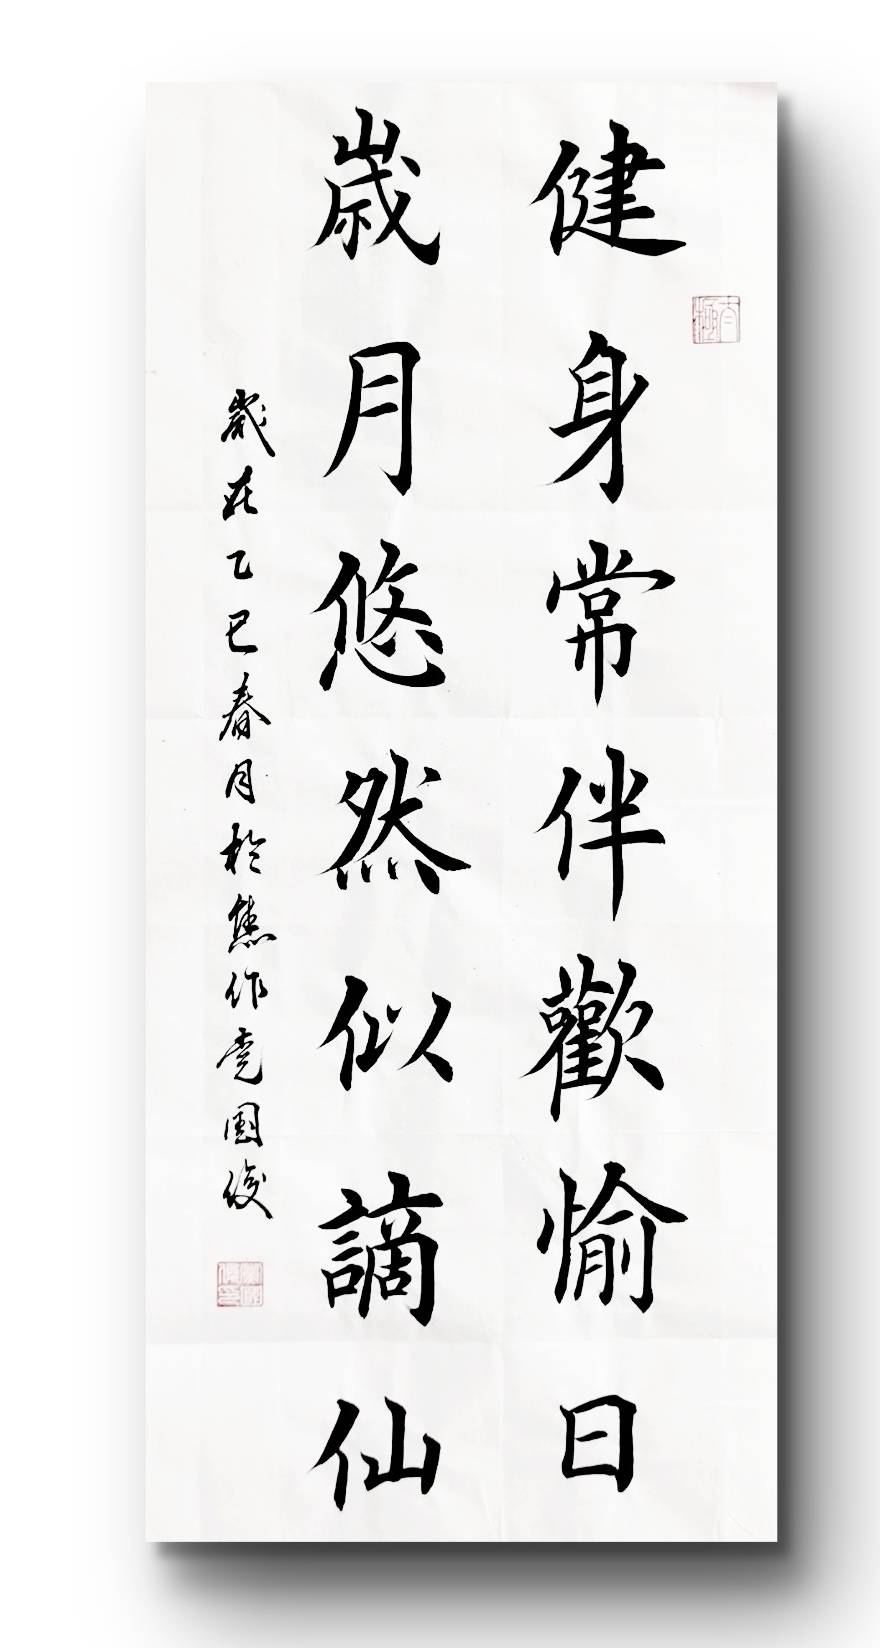 健身常伴歡愉日
嵗月悠然似謫仙
嵗在乙巳春月於焦作国俊
太極